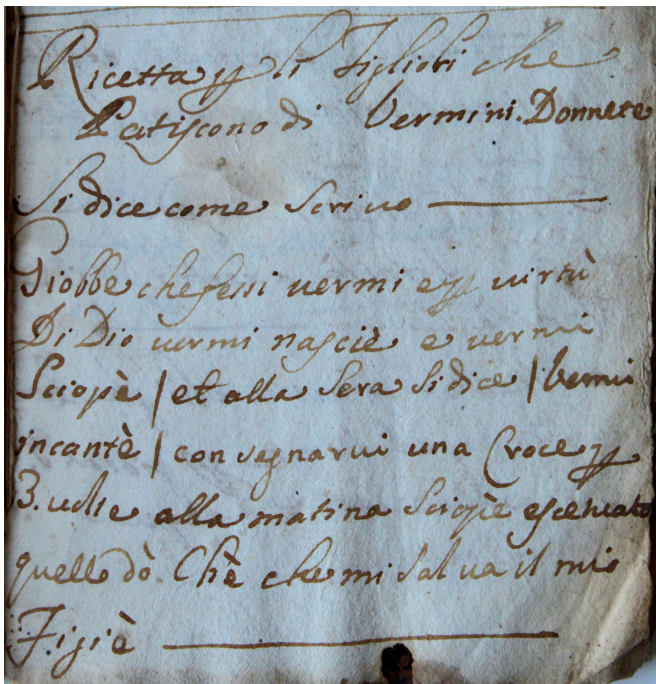 Ricetta p li figlioli che
Patiscono di Vermini. Donnete
Si dice come scrivo
Giobbe che fessi vermi e p virtù
Di Dio vermi nasciè e vermi
Sciopè / et alla sera si dice / vermi
incantè / con segnarvi una Croce p
3. volte alla matina Sciopiè
quello dò. Chè che mi salva il mio
Figiè